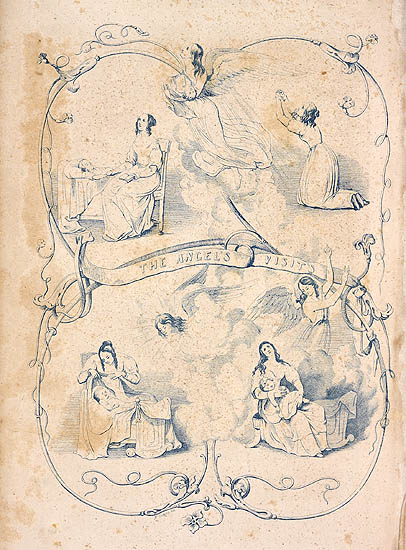 THE ANGEL'S VISIT